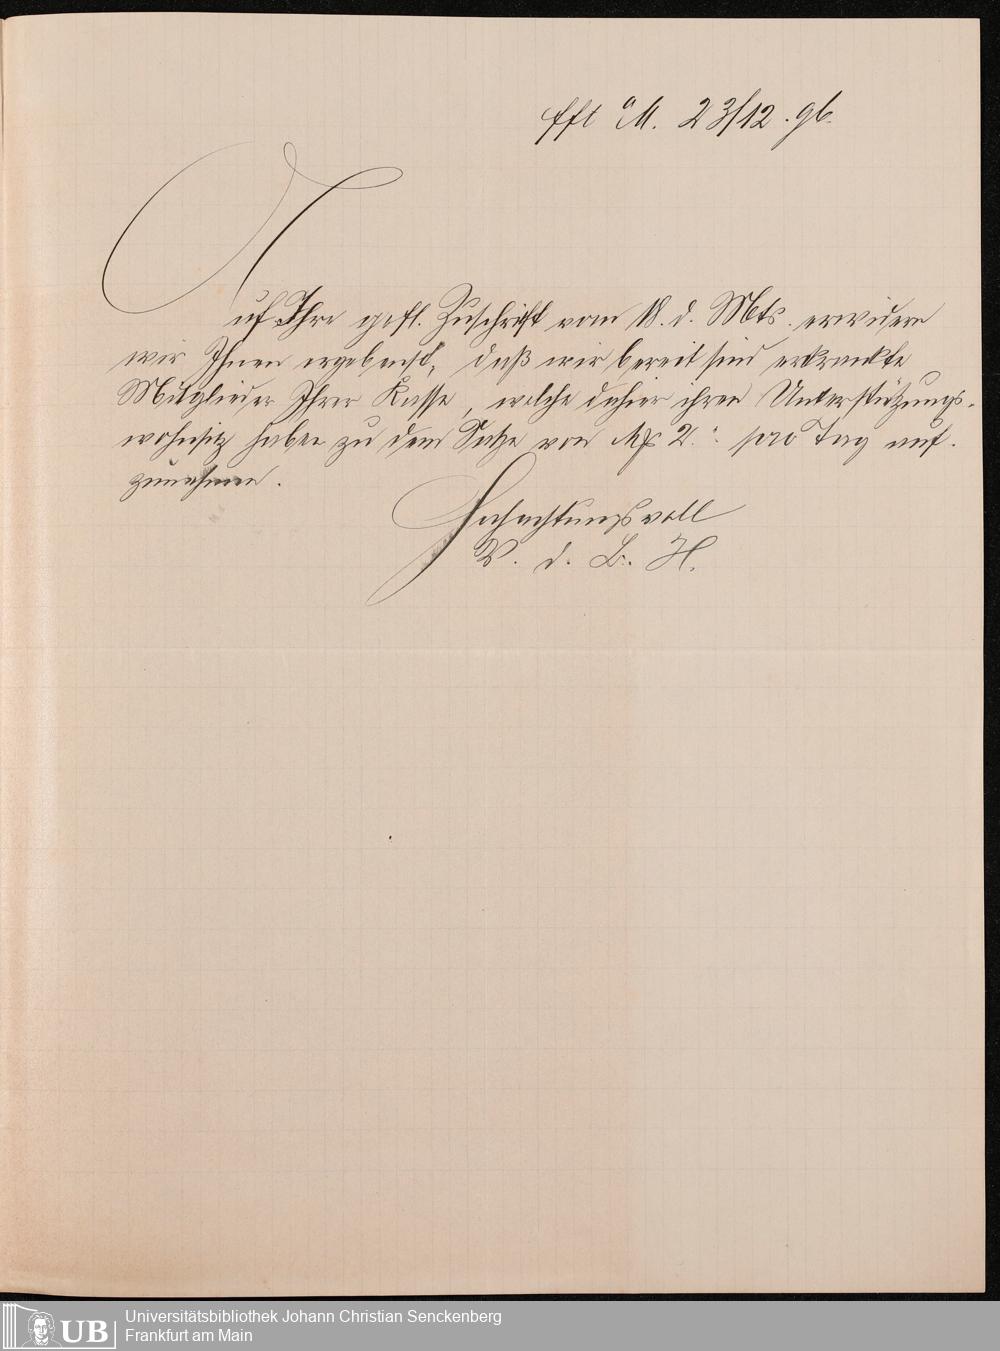 Fft a/M. 23/12. 96.
Auf Ihre gefl. Zuschrift vom 18. d. Mts. erwidern
wir Ihnen ergebenst, daß wir bereit sind erkrankte
Mitglieder Ihrer Kasse, welche dahier ihren Unterstützungs-
wohnsitz haben zu dem Satze von M 2.- pro Tag auf-
zunehmen.
Hochachtungsvoll
V. d. B. H.
Universitätsbibliothek Johann Christian Senckenberg
Frankfurt am Main
UB